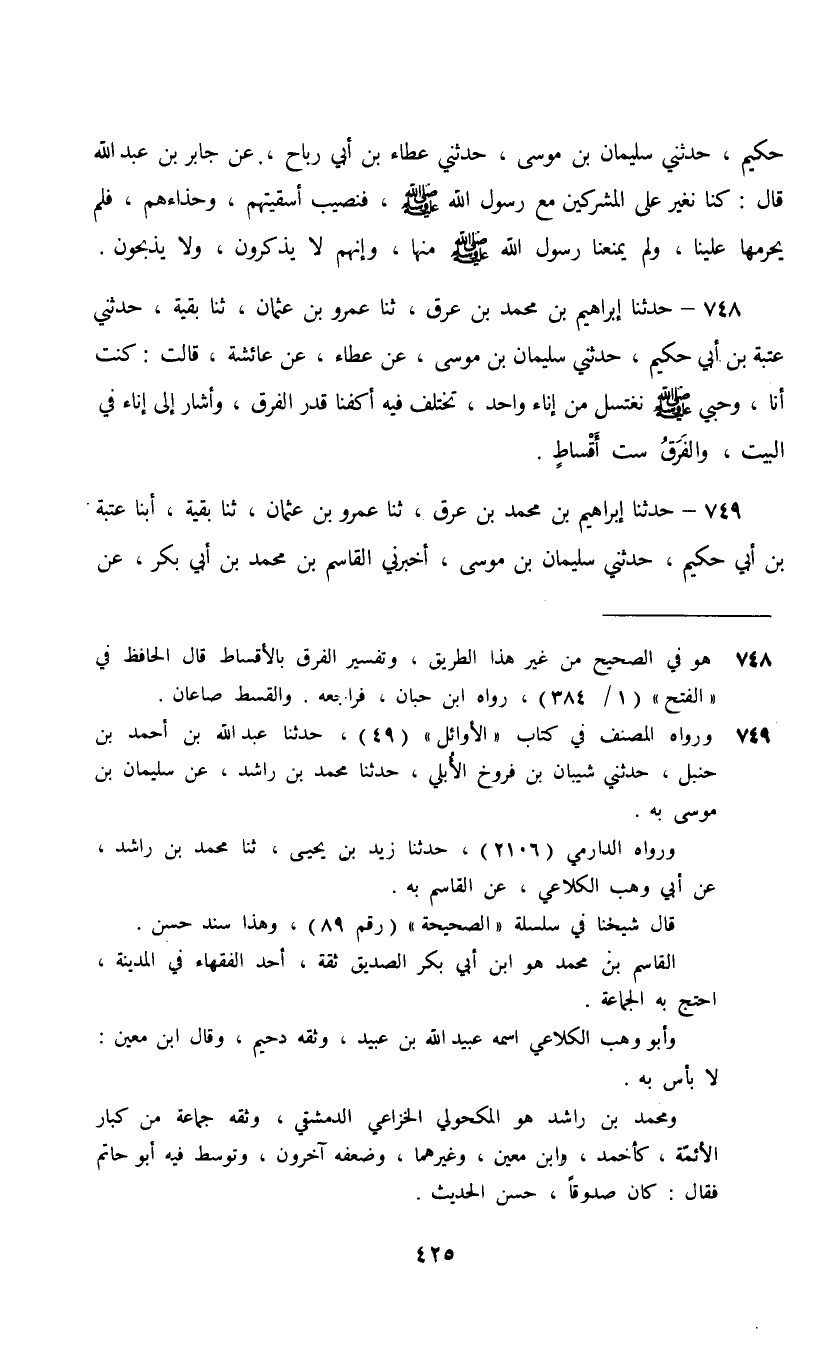 حكيم ، حدثني سليمان بن موسى ، حدثني عطاء بن أبي رباح ، عن جابر بن عبد الله
قال : كنا نغير على المشركين مع رسول الله ﷺ ، فنصيب أسقيتهم ، وحذاءهم ، فلم
يحرمها علينا ، ولم يمنعنا رسول الله ﷺ منها ، وإنهم لا يذكرون ، ولا يذبحون .
٧٤٨ – حدثنا إبراهيم بن محمد بن عرق ، ثنا عمرو بن عثمان ، ثنا بقية ، حدثني
عتبة بن أبي حكيم ، حدثني سليمان بن موسى ، عن عطاء ، عن عائشة ، قالت : كنت
أنا ، وحبي ﷺ نغتسل من إناء واحد ، تختلف فيه أكفنا قدر الفرق ، وأشار إلى إناء في
البيت ، والفَرَقُ ست أَقْساطٍ .
٧٤٩ – حدثنا إبراهيم بن محمد بن عرق ، ثنا عمرو بن عثمان ، ثنا بقية ، أبنا عتبة
بن أبي حكيم ، حدثني سليمان بن موسى ، أخبرني القاسم بن محمد بن أبي بكر ، عن
٧٤٨ هو في الصحيح من غير هذا الطريق ، وتفسير الفرق بالأقساط قال الحافظ في
« الفتح » ( ١ / ٣٨٤ ) ، رواه ابن حبان ، فراجعه . والقسط صاعان .
٧٤٩ ورواه المصنف في كتاب « الأوائل » ( ٤٩ ) ، حدثنا عبد الله بن أحمد بن
حنبل ، حدثني شيبان بن فروخ الأُبلي ، حدثنا محمد بن راشد ، عن سليمان بن
موسى به .
ورواه الدارمي ( ٢١٠٦ ) ، حدثنا زيد بن يحيى ، ثنا محمد بن راشد ،
عن أبي وهب الكلاعي ، عن القاسم به .
قال شيخنا في سلسلة « الصحيحة » ( رقم ٨٩ ) ، وهذا سند حسن .
القاسم بن محمد هو ابن أبي بكر الصديق ثقة ، أحد الفقهاء في المدينة ،
احتج به الجماعة .
وأبو وهب الكلاعي اسمه عبيد الله بن عبيد ، وثقه دحيم ، وقال ابن معين :
لا بأس به .
ومحمد بن راشد هو المكحولي الخزاعي الدمشقي ، وثقه جماعة من كبار
الأئمّة ، كأحمد ، وابن معين ، وغيرهما ، وضعفه آخرون ، وتوسط فيه أبو حاتم
فقال : كان صدوقاً ، حسن الحديث .
٤٢٥